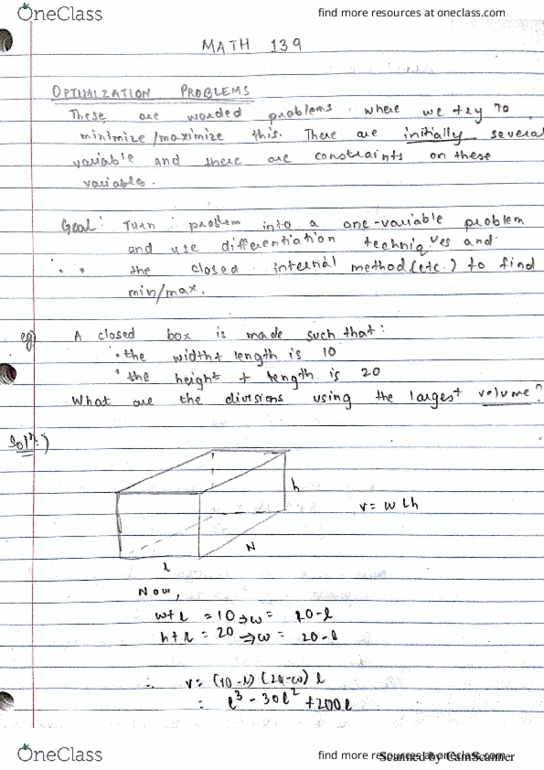 OneClass
find more resources at oneclass.com
MATH 139
OPTIMALIZATION PROBLEMS
These are worded problems where we try to
minimize/maximize this. There are initially several
variable and there are constraints on these
variables.
Goal: Turn problem into a one-variable problem
and use differentiation techniques and
the closed internal method (etc.) to find
min/max.
eg) A closed box is made such that:
• the width + length is 10
• the height + length is 20
What are the divisions using the largest volume?
Solⁿ:)
h
v = wlh
W
l
Now,
w+l = 10 → w = 10-l
h+l = 20 → w = 20-l
∴ v = (10-l) (20-w) l
= l³ - 30l² + 200l
OneClass
find more resources at oneclass.com
Scanned by CamScanner